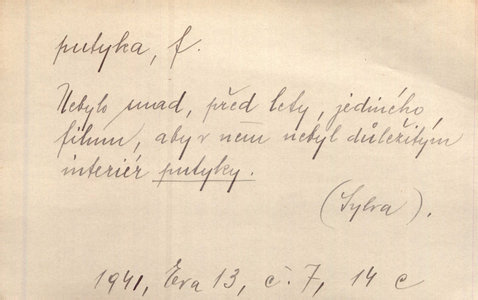 putyka, f.
Nebylo snad, před lety, jediného
filmu, aby v něm nebyl důležitým
interiér putyky.
(Sylva).
1941, Eva 13, č. 7, 14 c